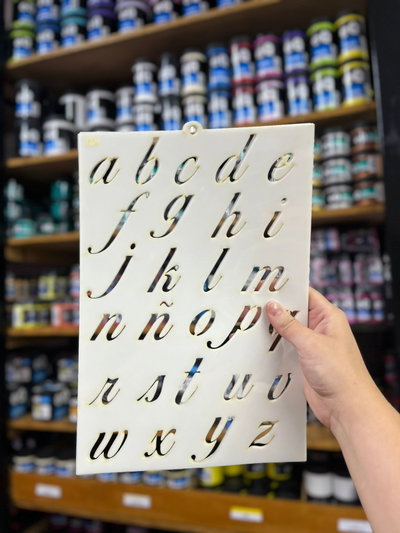 a b c d e
f g h i
j k l m
n ñ o p q
r s t u v
w x y z